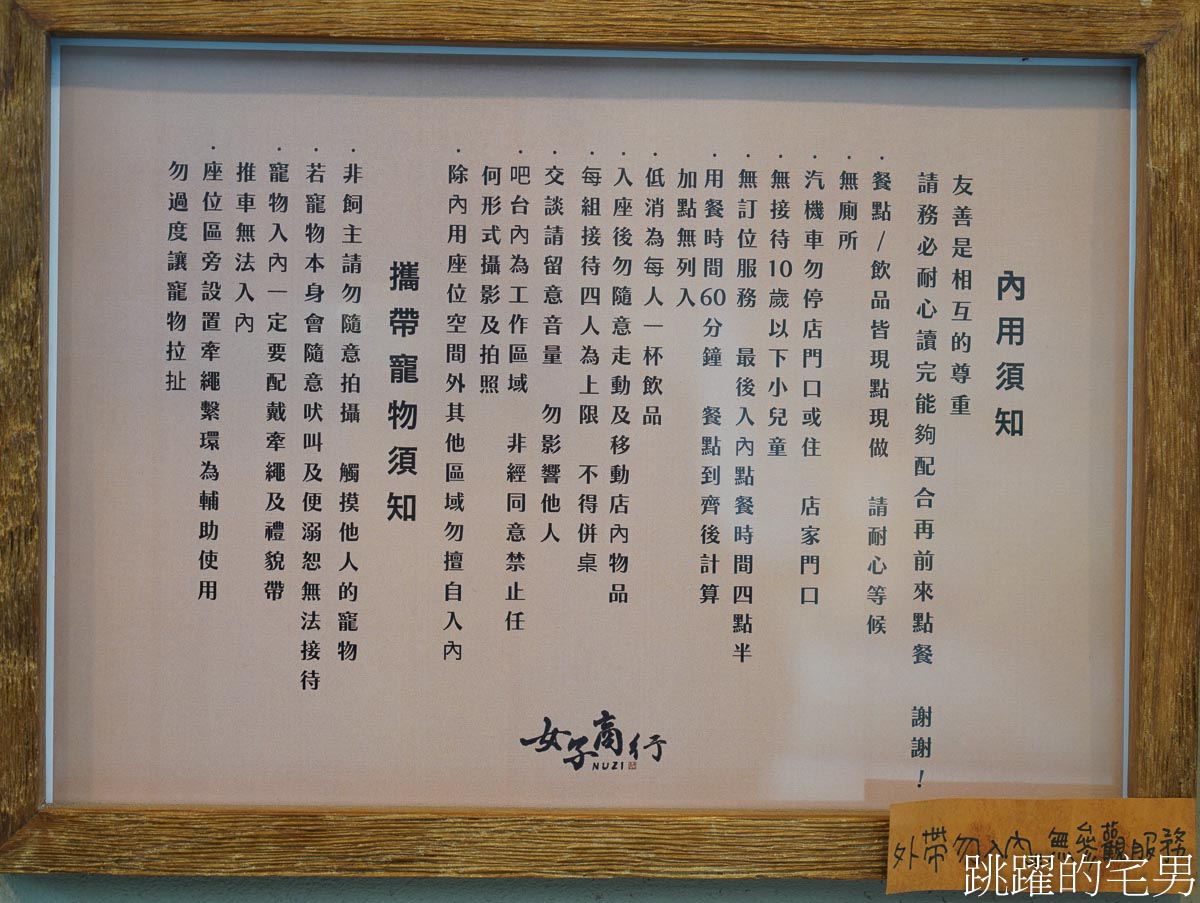 內用須知
友善是相互的尊重
請務必耐心讀完能夠配合再前來點餐　謝謝！
・餐點/飲品皆現點現做　請耐心等候
・無廁所
・汽機車勿停店門口或住　店家門口
・無接待10歲以下小兒童
・無訂位服務　最後入內點餐時間四點半
・用餐時間60分鐘　餐點到齊後計算
加點無列入
・低消為每人一杯飲品
・入座後勿隨意走動及移動店內物品
・每組接待四人為上限　不得併桌
・交談請留意音量　勿影響他人
・吧台內為工作區域　非經同意禁止任
何形式攝影及拍照
・除內用座位空間外其他區域勿擅自入內
攜帶寵物須知
・非飼主請勿隨意拍攝　觸摸他人的寵物
・若寵物本身會隨意吠叫及便溺恕無法接待
・寵物入內一定要配戴牽繩及禮貌帶
推車無法入內
・座位區旁設置牽繩繫環為輔助使用
勿過度讓寵物拉扯
女子商行
NUZI
外帶勿入內 無參觀服務
跳躍的宅男